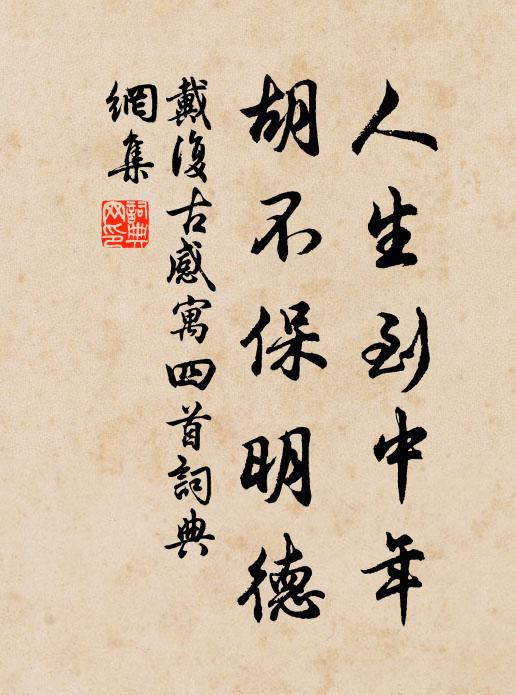 人生到中年
胡不保明德
戴復古感寓四首詞典
網集
詞典
网印